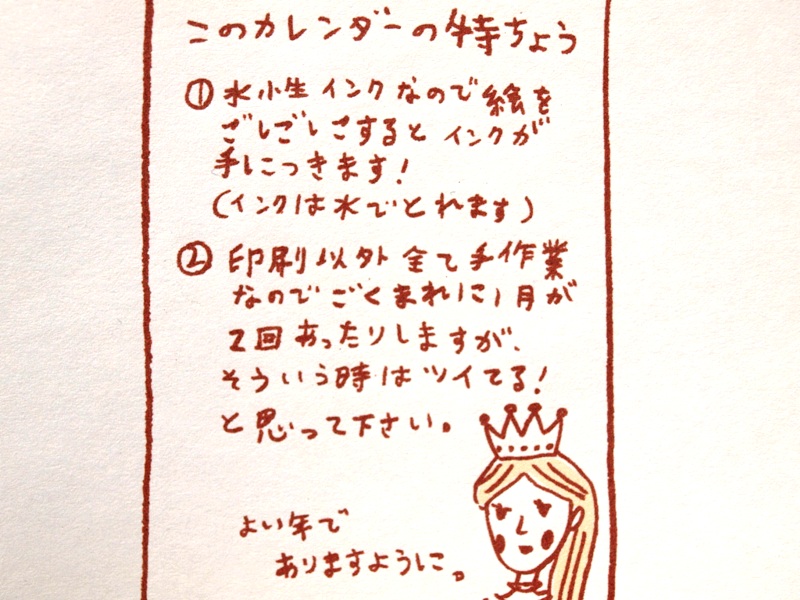 このカレンダーの特ちょう
① 水小生インクなので絵を
ごしごしこすると インクが
手につきます!
(インクは水でとれます)
② 印刷以外 全て手作業
なのでごくまれに1月が
2回あったりしますが、
そういう時はツイてる!
と思って下さい。
よい年で
ありますように。